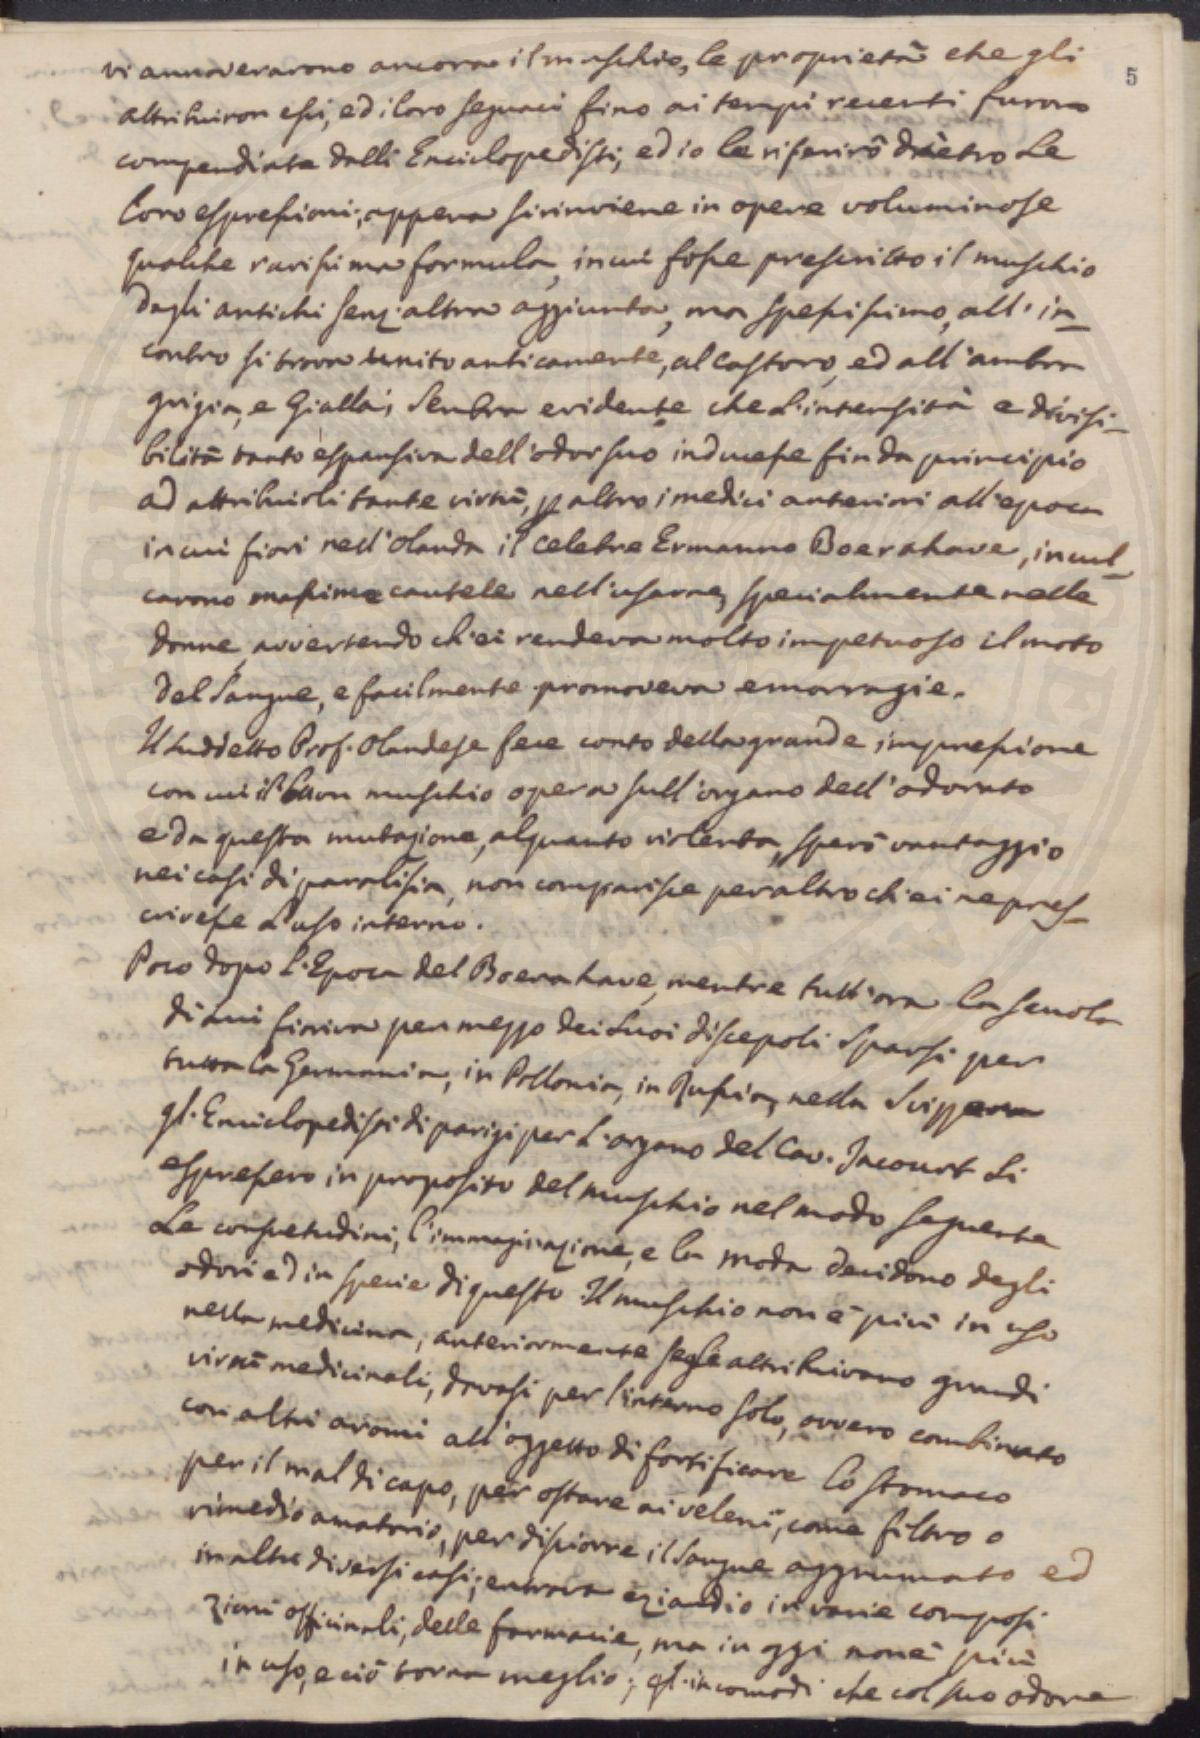 5
vi annoverarono ancora il muschio, le proprietà che gli
attribuiron essi, ed i loro seguaci fino ai tempi recenti furono
compendiate dalli Enciclopedisti, ed io le riferirò dietro le
loro espressioni; appena si rinviene in opere voluminose
qualche rarissima formula, in cui fosse prescritto il muschio
dagli antichi senz'altra aggiunta, ma spessissimo, all'in-
contro si trova unito anticamente, al castoro, ed all'ambra
grigia, e Gialla; Sembra evidente che l'intensità e divisi-
bilità tanto espansiva dell'odor suo inducesse fin da principio
ad attribuirli tante virtù, p altro i medici anteriori all'epoca
in cui fiorì nell'Olanda il celebre Ermanno Boerahave, incul-
carono massime cautele nell'usarne, specialmente nelle
donne, avvertendo ch'ei rendeva molto impetuoso il moto
del Sangue, e facilmente promoveva emorragie.
Il suddetto Prof. Olandese fece conto della grande impressione
con cui il buon muschio opera sull'organo dell'odorato
e da questa mutazione, alquanto violenta, sperò vantaggio
nei casi di paralisia, non comparisce peraltro ch'ei ne pres-
crivesse l'uso interno.
Poco dopo l'Epoca del Boerahave, mentre tutt'ora la scuola
di cui fioriva per mezzo dei suoi discepoli sparsi per
tutta la Germania, in Pollonia, in Russia, nella Svizzera
gl'Enciclopedisti di parigi per l'organo del Cav. Jacourt si
espressero in proposito del muschio nel modo seguente
Le consuetudini, l'immaginazione, e la moda decidono degli
odori ed in specie di questo. Il muschio non è più in uso
nella medicina, anteriormente se gle attribuivano grandi
virtù medicinali, davasi per l'interno solo, ovvero combinato
con altri aromi all'oggetto di fortificare lo stomaco
per il mal di capo, per ostare ai veleni, come filtro o
rimedio amatorio, per disciorre il sangue aggrumato ed
in altri diversi casi; entrava eziandio in varie composi
zioni officinali, delle farmacie, ma in oggi non è più
in uso, e ciò torna meglio; gl'incomodi che col suo odore